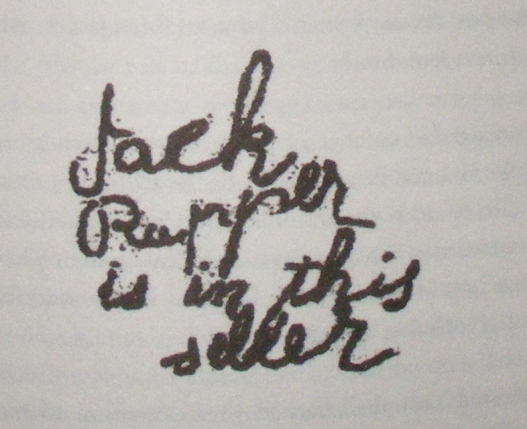 Jack
Ripper
is in this
seller